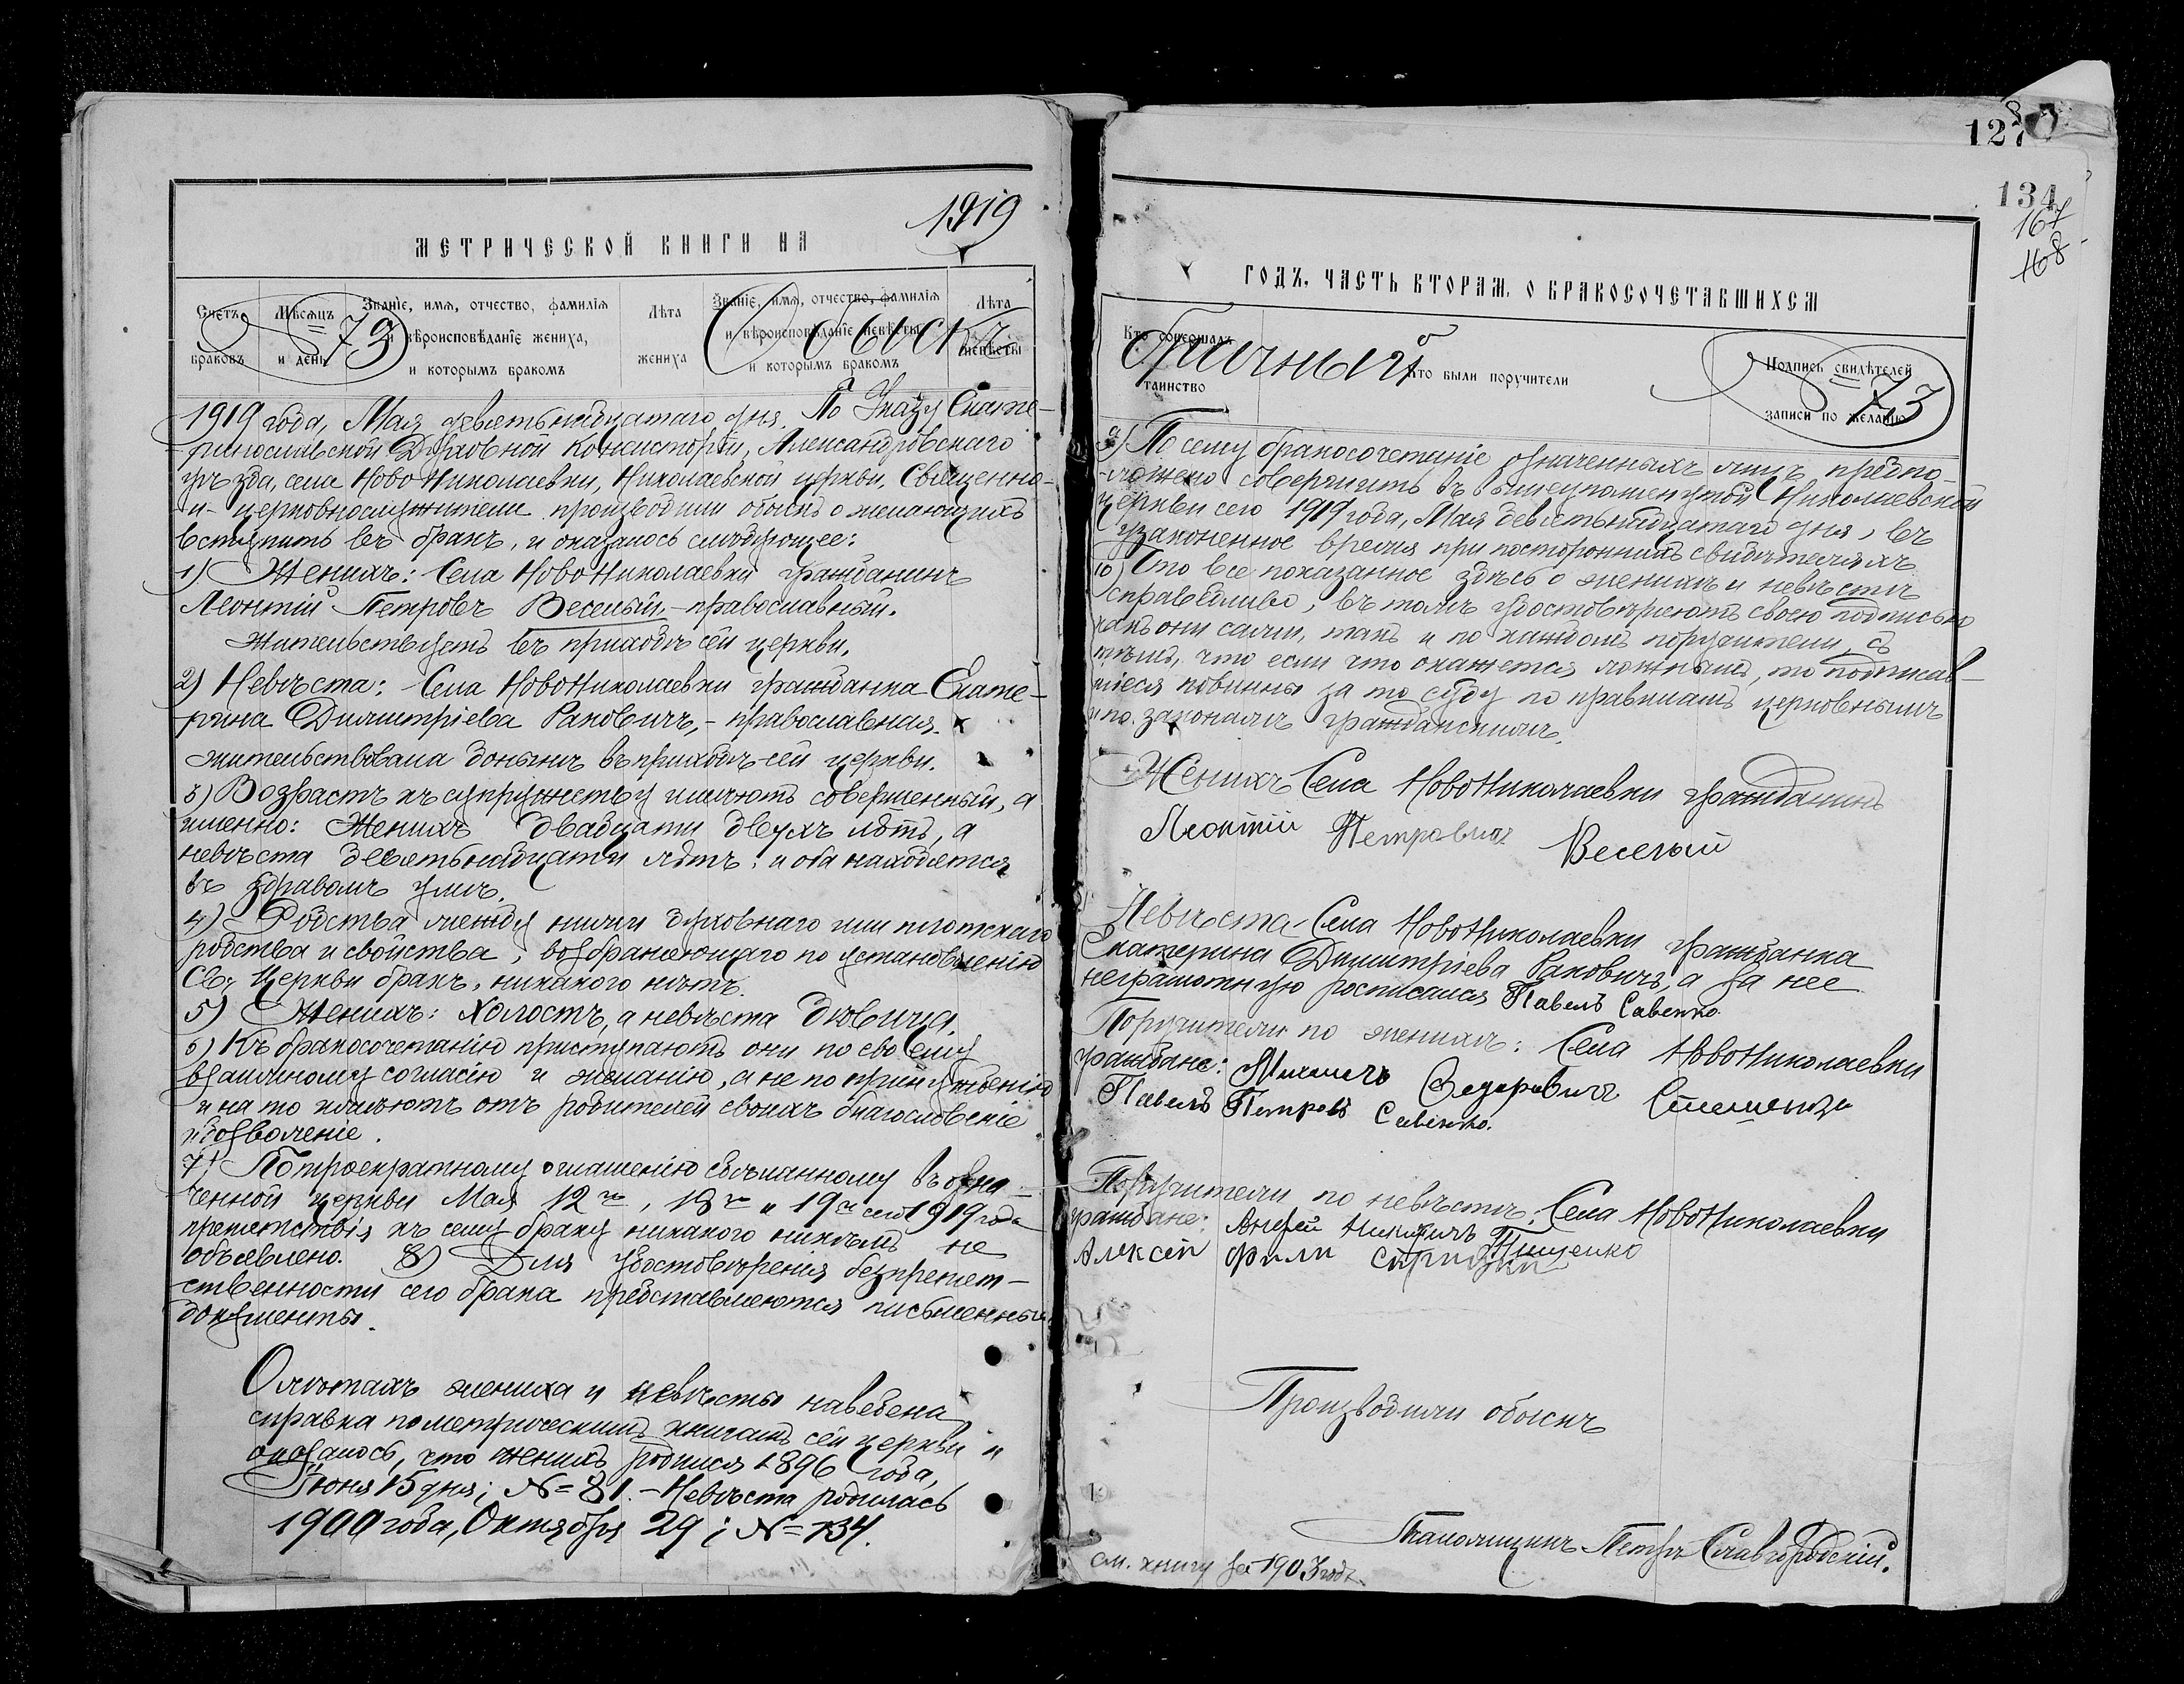 1919
МЕТРИЧЕСКОЙ КНИГИ НА
Счетъ браковъ
Мѣсяцъ и день
Званіе, имя, отчество, фамилія и вѣроисповѣданіе жениха, и которымъ бракомъ
Лѣта жениха
Званіе, имя, отчество, фамилія и вѣроисповѣданіе невѣсты и которымъ бракомъ
Лѣта невѣсты
73
Обыскъ
1919 года, Мая девятьнадцатаго дня. По Указу Екате-
ринославской Духовной Консисторіи, Александровскаго
уѣзда, села Ново Николаевки, Николаевской церкви, Священно-
и-церковнослужители производили обыскъ о желающихъ
вступить въ бракъ, и оказалось слѣдующее:
1) Женихъ: Села НовоНиколаевки гражданинъ
Леонтій Петровъ Веселый, - православный.
жительствуетъ въ приходѣ сей церкви.
2) Невѣста: Села НовоНиколаевки гражданка Екате-
рина Димитріева Раковичъ, - православная.
жительствовала донынѣ въ приходѣ сей церкви.
3) Возрастъ къ супружеству имѣютъ совершенный, а
именно: Женихъ двадцати двухъ лѣтъ, а
невѣста девятьнадцати лѣтъ; и оба находятся
въ здравомъ умѣ.
4) Родства между ними духовнаго или плотскаго
родства и свойства, возбраняющаго по установленію
Св. Церкви бракъ, никакого нѣтъ.
5) Женихъ: Холостъ, а невѣста дѣвица.
6) Къ бракосочетанію приступаютъ они по своему
взаимному согласію и желанію, а не по принужденію
и на то имѣютъ отъ родителей своихъ благословеніе
и дозволеніе.
7) По троекратному оглашенію сдѣланному въ озна-
ченной церкви Мая 12го, 18го и 19го сего 1919 года
препятствія къ сему браку никакого никѣмъ не
объявлено. 8) Для удостовѣренія безпрепят-
ственности сего брака представляются письменные
документы.
О лѣтахъ жениха и невѣсты наведена
справка по метрическимъ книгамъ сей церкви и
оказалось, что женихъ родился 1896 года,
Іюня 15 дня; №=81. - Невѣста родилась
1900 года, Октября 29; №=134.
127
8
134
167
168
ГОДЪ, ЧАСТЬ ВТОРАЯ, О БРАКОСОЧЕТАВШИХСЯ
Кто совершалъ таинство
Кто были поручители
Подпись свидѣтелей записи по желанію
брачный
73
9) По сему бракосочетаніе означенныхъ лицъ предпо-
ложено совершить въ вышеупомянутой Николаевской
церкви сего 1919 года, Мая девятьнадцатаго дня, въ
узаконенное время при постороннихъ свидѣтеляхъ.
10) Что все показанное здѣсь о женихѣ и невѣстѣ
справедливо, въ томъ удостовѣряютъ своею подписью
какъ они сами, такъ и по каждомъ поручители, съ
тѣмъ, что если что окажется ложнымъ, то подписав-
шіеся повинны за то суду по правиламъ церковнымъ
и по законамъ гражданскимъ.
Женихъ Села НовоНиколаевки гражданинъ
Леонтій Петровичъ Веселый
Невѣста Села НовоНиколаевки гражданка
Екатерина Димитріева Раковичъ, а за нее
неграмотную росписался Павелъ Савенко.
Поручители по женихѣ: Села НовоНиколаевки
граждане:
Павелъ Петровъ Савенко.
Поручители по невѣстѣ: Села НовоНиколаевки
граждане: Андрей
Алексѣй
Производили обыскъ
Псаломщикъ Петръ Славгородскій.
см. книгу за 1903 годъ.